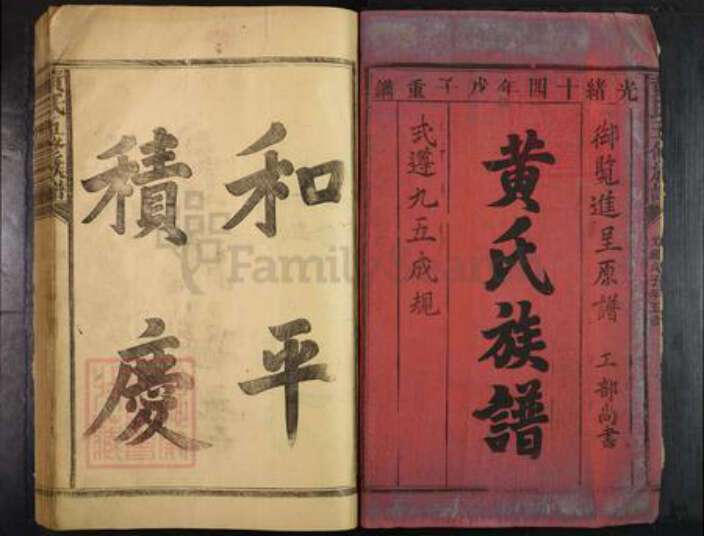 光緒十四年戊子重鐫
御覽進呈原譜 工部尚書
黄氏族譜
式遵九五成規
和平
積慶